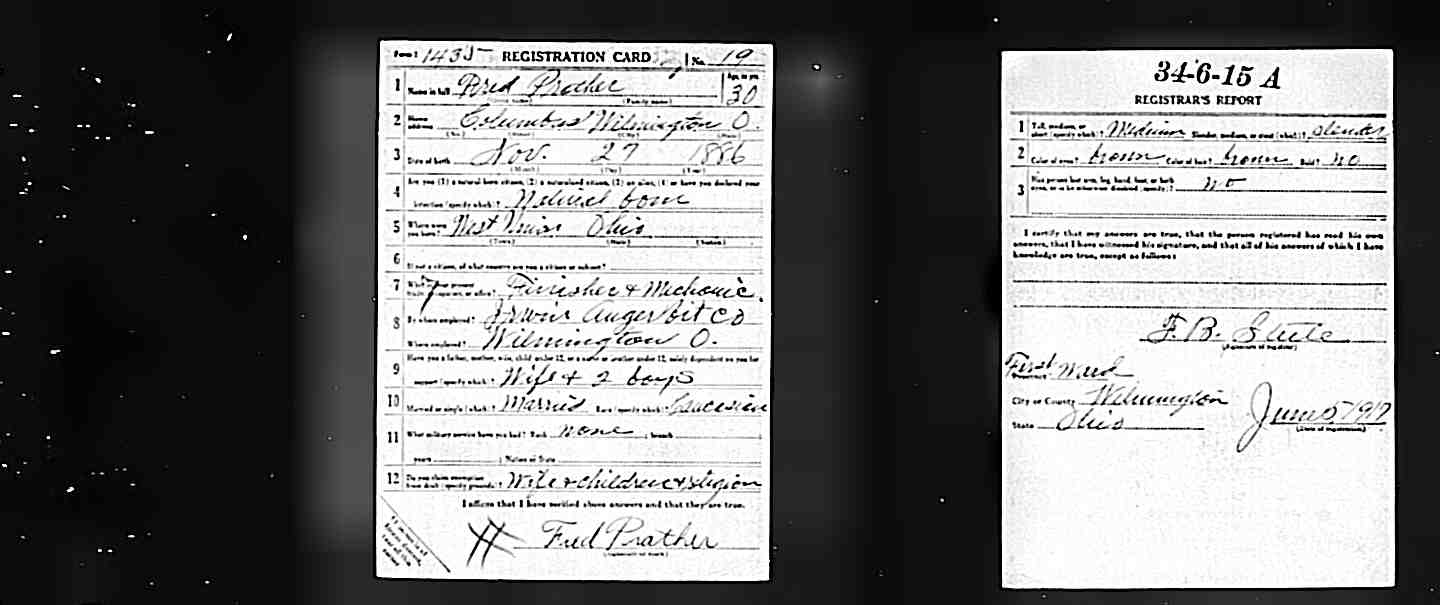 Form 1 1435 REGISTRATION CARD No. 19
1 Name in full Fred Prather Age, in yrs. 30
(Given name) (Family name)
2 Home address Columbus Wilmington O.
(No.) (Street) (City) (State)
3 Date of birth Nov. 27 1886
(Month) (Day) (Year)
4 Are you (1) a natural born citizen, (2) a naturalized citizen, (3) an alien, (4) or have you declared your
intention (specify which)? Natural born
5 Where were you born? West Union Ohio
(Town) (State) (Nation)
6 If not a citizen, of what country are you a citizen or subject?
7 What is your present trade, occupation, or office? Finisher & Mechanic.
8 By whom employed? Irwin Auger bit Co
Where employed? Wilmington O.
9 Have you a father, mother, wife, child under 12, or a sister or brother under 12, solely dependent on you for
support (specify which)? Wife & 2 boys
10 Married or single (which)? Married Race (specify which)? Caucasian
11 What military service have you had? Rank none ; branch
years ; Nation or State
12 Do you claim exemption from draft (specify grounds)? Wife & children & religion
I affirm that I have verified above answers and that they are true.
Fred Prather
(Signature or mark)
34-6-15 A
REGISTRAR'S REPORT
1 Tall, medium, or short (specify which)? Medium Slender, medium, or stout (which)? slender
2 Color of eyes? brown Color of hair? brown Bald? no
3 Has person lost arm, leg, hand, foot, or both eyes, or is he otherwise disabled (specify)? no
I certify that my answers are true, that the person registered has read his own
answers, that I have witnessed his signature, and that all of his answers of which I have
knowledge are true, except as follows:
F. B. Stute
(Signature of registrar)
Precinct First Ward
City or County Wilmington
State Ohio
June 5 1917
(Date of registration)